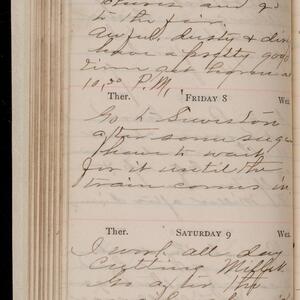 and go
to the fair.
Awful dusty & din
have a pretty good
time get home a
10,30 P.M.
Ther. FRIDAY 8 Wea
Go to Lewiston
after some sugar
I have to wait
for it until the
train comes in
Ther. SATURDAY 9 Wea
I work all day
Cutting Millet
Go after the